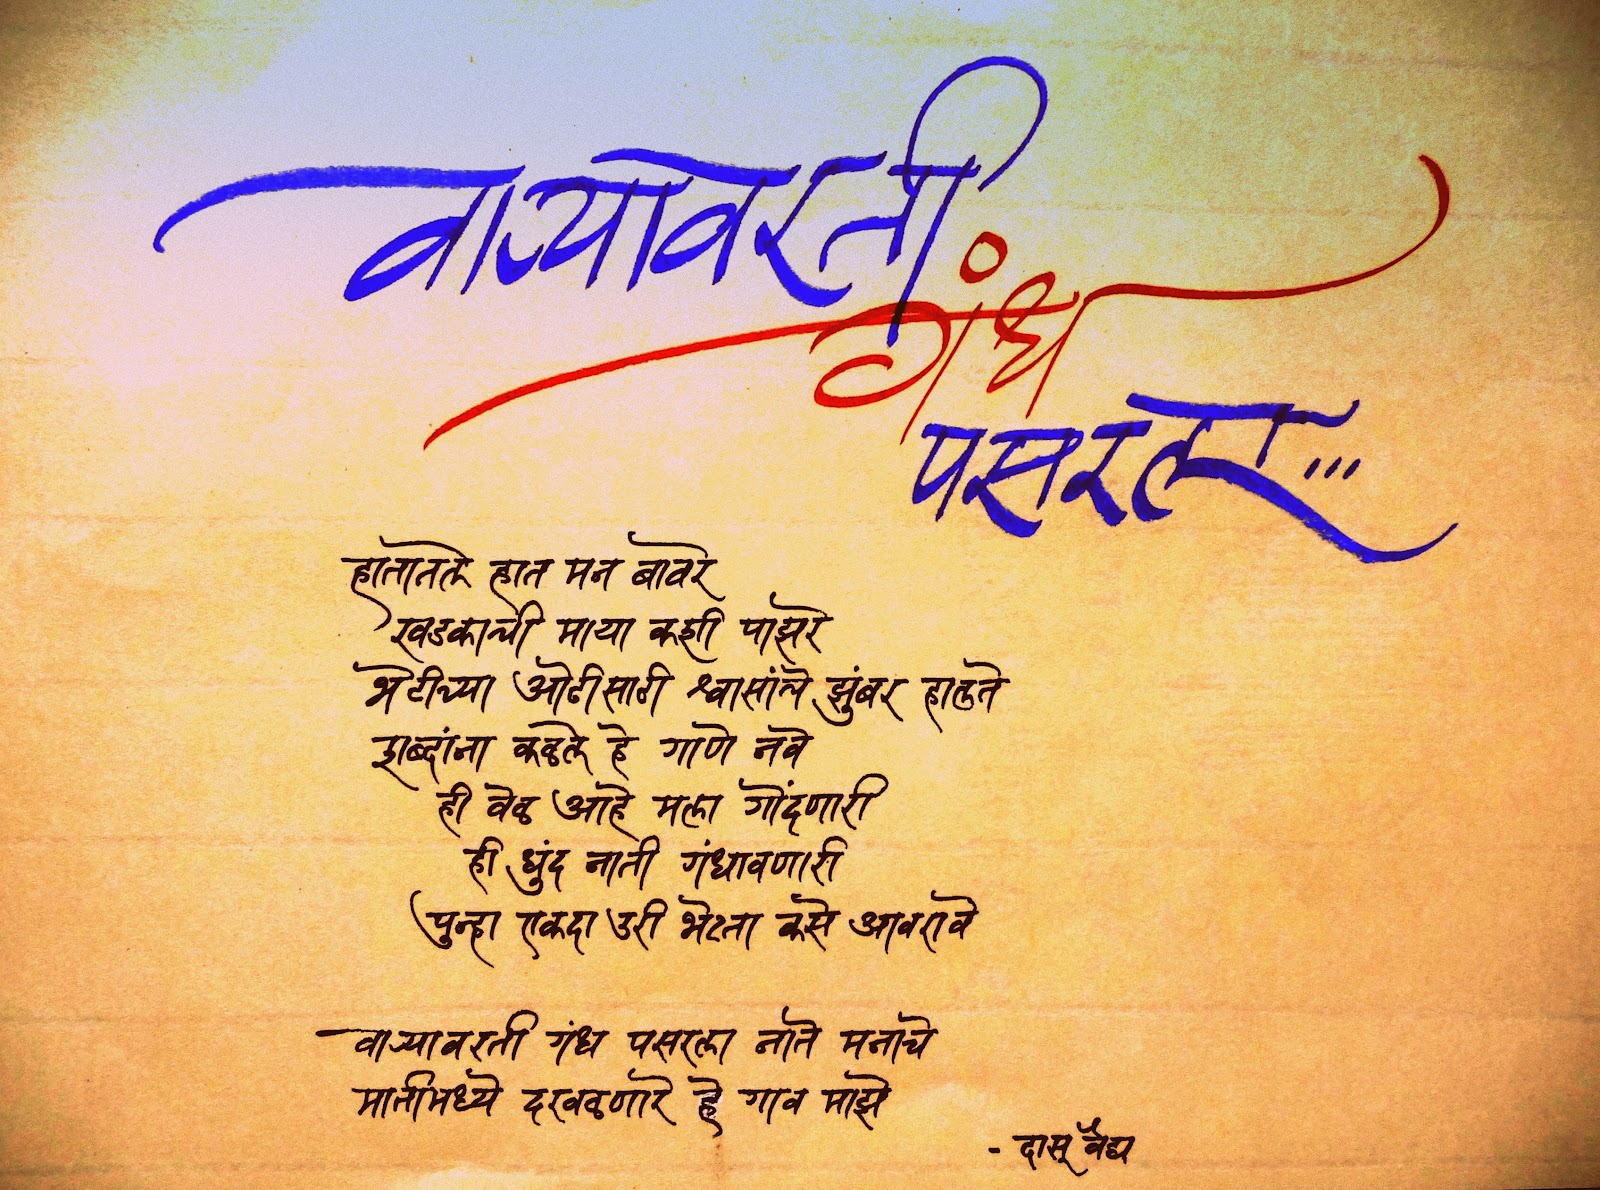 वाऱ्यावरती
गंध
पसरला...
हातातले हात मन बावरे
खडकाची माया कशी पाझरे
भेटीच्या ओढीसाठी श्वासांचे झुंबर हालते
शब्दांना कळले हे गाणे नवे
ही वेळ आहे मला गोंदणारी
ही धुंद नाती गंधावणारी
पुन्हा एकदा उरी भेटता कसे आवरावे
वाऱ्यावरती गंध पसरला नाते मनाचे
मातीमध्ये दरवळणारे हे गाव माझे
- दासू वैद्य